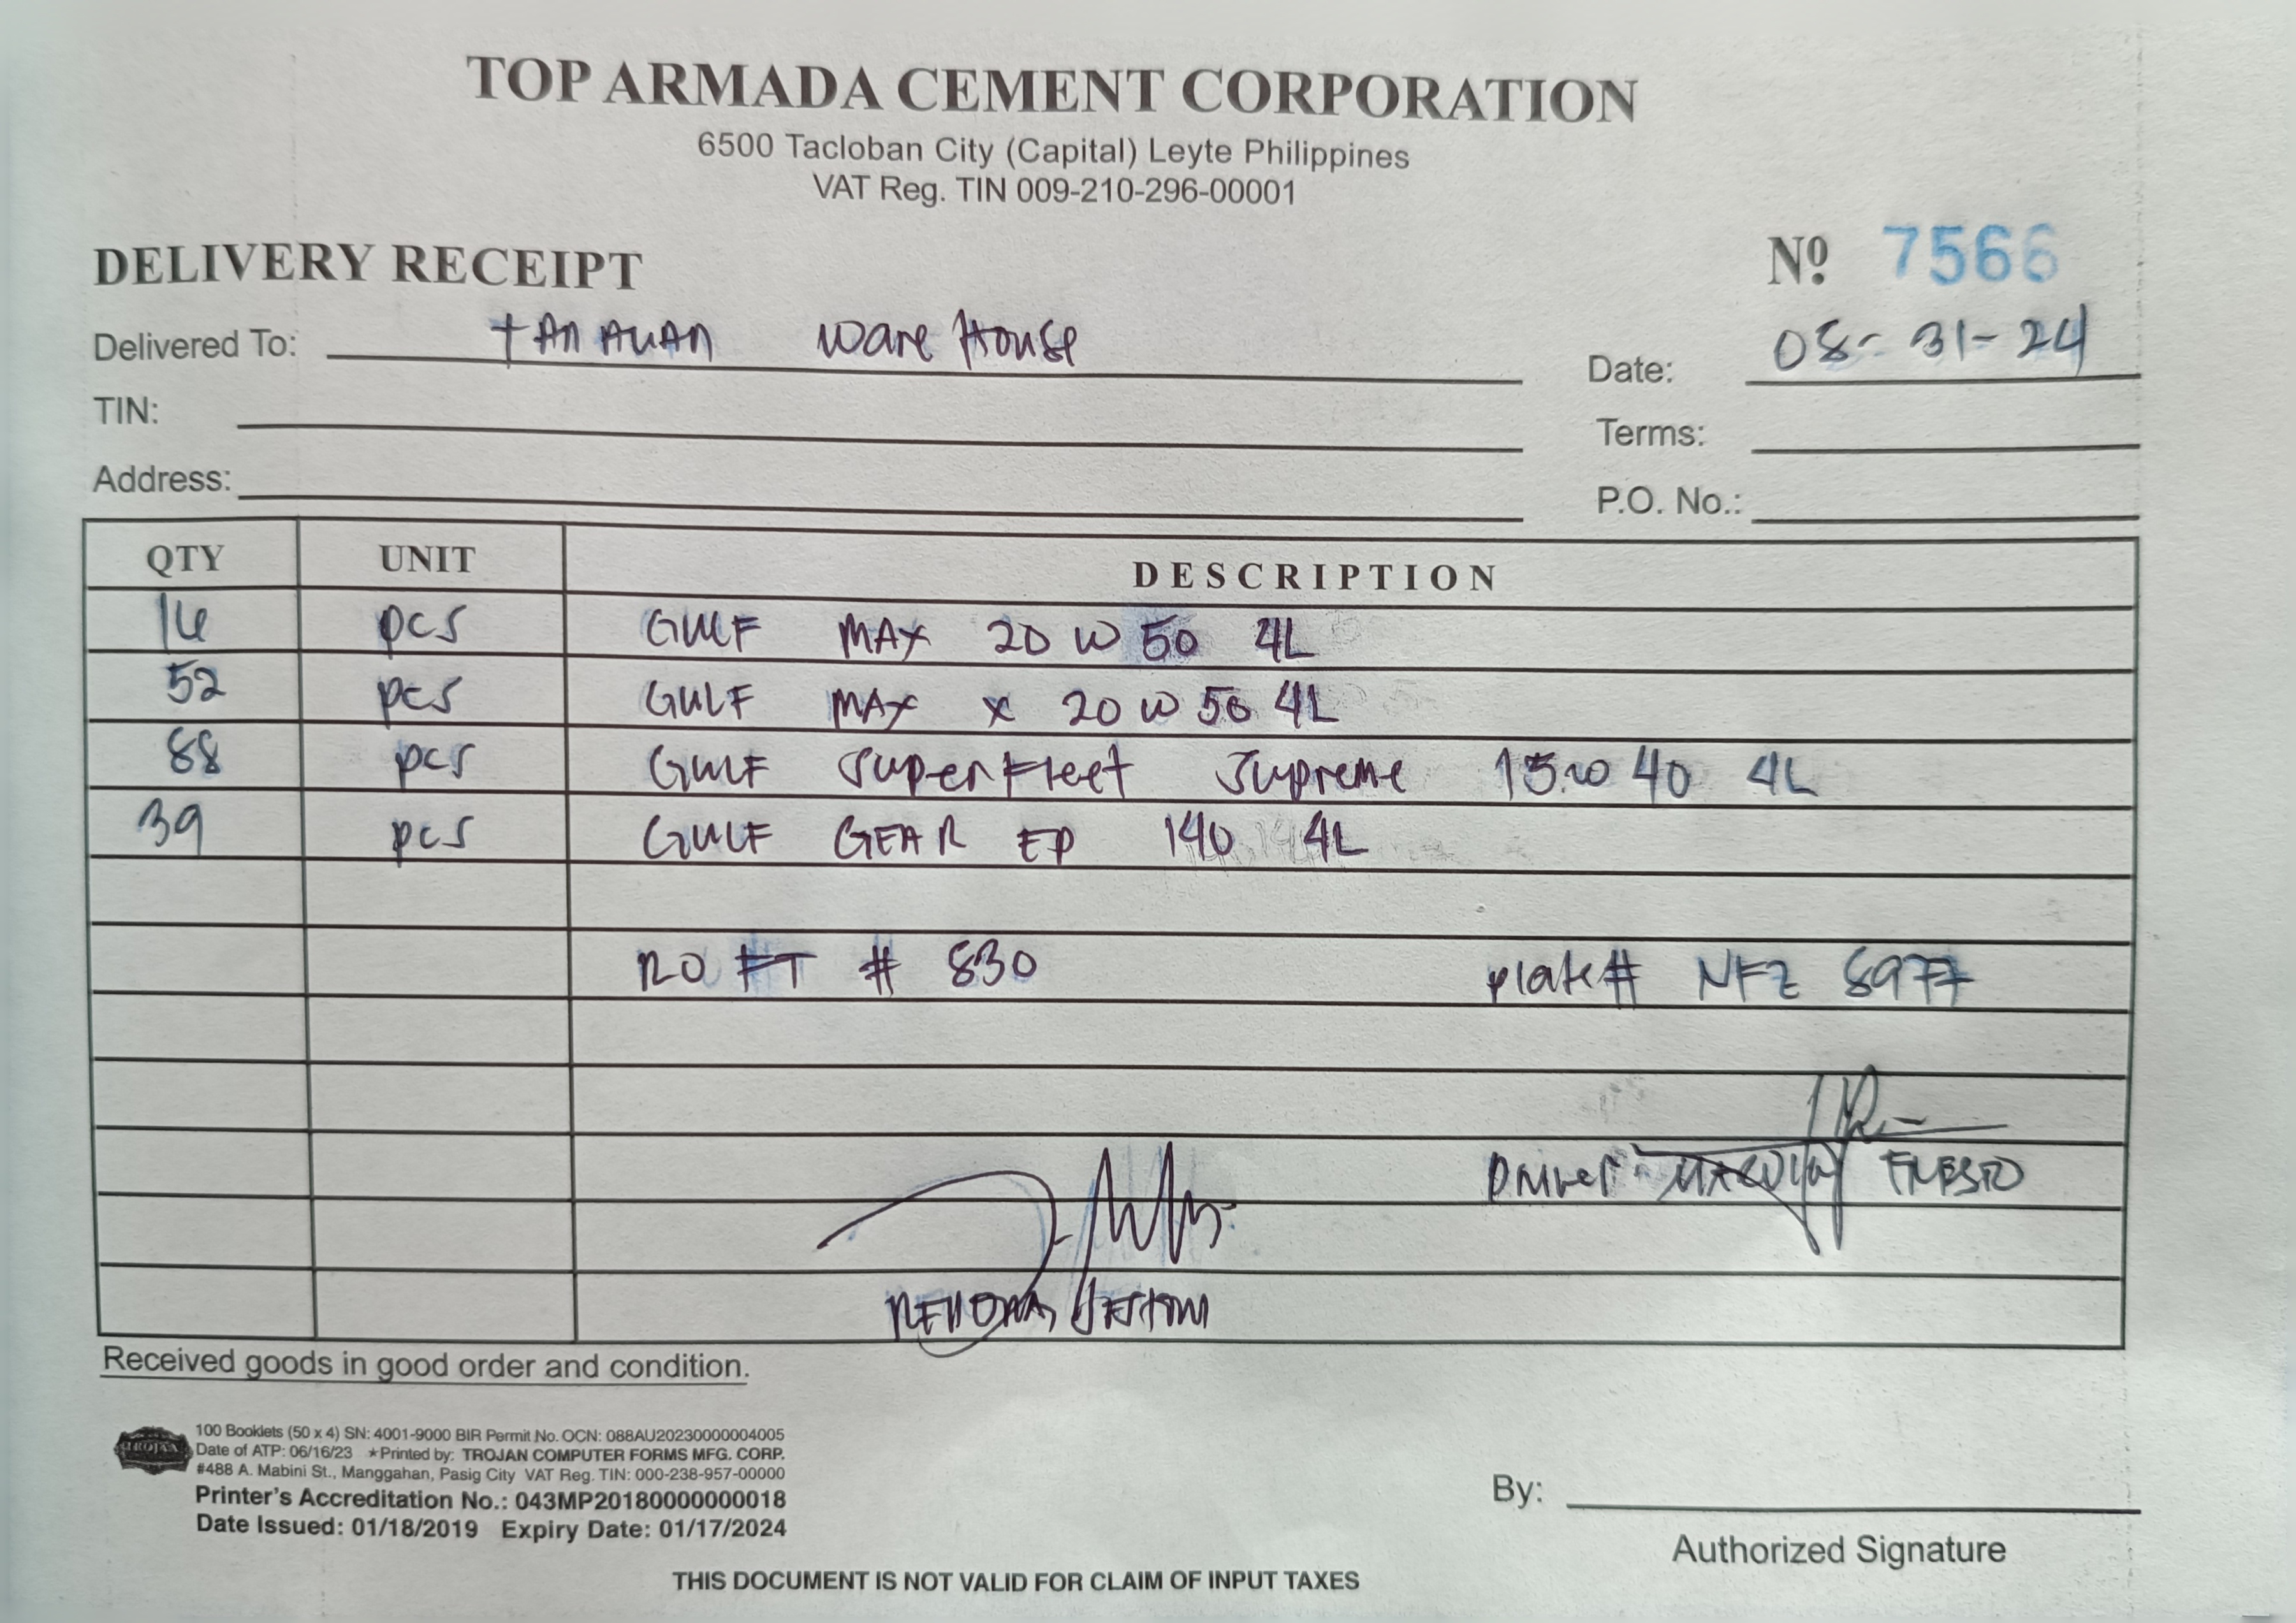 TOP ARMADA CEMENT CORPORATION
6500 Tacloban City (Capital) Leyte Philippines
VAT Reg. TIN 009-210-296-00001
DELIVERY RECEIPT
Nº 7566
Delivered To: TANAUAN Ware House
Date: 08-31-24
TIN:
Terms:
Address:
P.O. No.:
QTY UNIT DESCRIPTION
16 pcs GULF MAX 20 W 50 4L
52 pcs GULF MAX X 20 W 50 4L
88 pcs GULF SuperFleet Supreme 15W 40 4L
39 pcs GULF GEAR EP 140 4L
# 830 plate# NFZ 8977
Driver
Received goods in good order and condition.
TROJAN
100 Booklets (50 x 4) SN: 4001-9000 BIR Permit No. OCN: 088AU20230000004005
Date of ATP: 06/16/23 ★Printed by: TROJAN COMPUTER FORMS MFG. CORP.
#488 A. Mabini St., Manggahan, Pasig City VAT Reg. TIN: 000-238-957-00000
Printer's Accreditation No.: 043MP20180000000018
Date Issued: 01/18/2019 Expiry Date: 01/17/2024
By:
Authorized Signature
THIS DOCUMENT IS NOT VALID FOR CLAIM OF INPUT TAXES